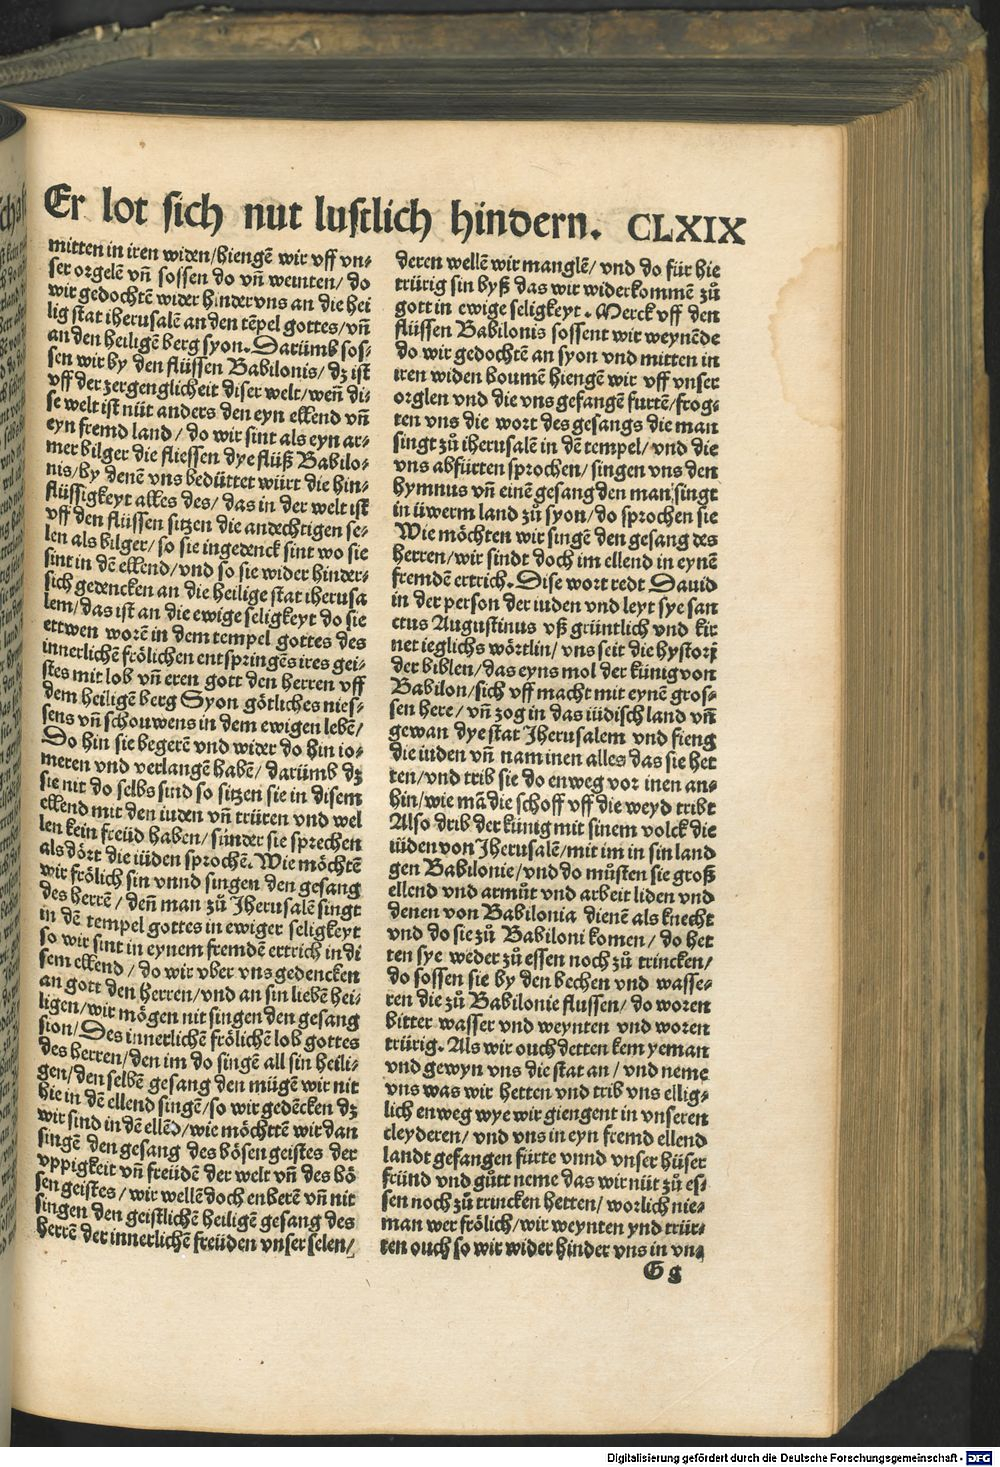 Er lot sich nut lustlich hindern. CLXIX
mitten in iren widen/hiengē wir vff vn⸗
ser orgelē vñ sossen do vñ weinten/ do
wir gedochtē wider hinder vns an die hei
lig stat iherusalē an den tēpel gottes/vñ
an den heiligē berg syon. Darūmb sos⸗
sen wir by den flüssen Babilonis/ dz ist
vff der zergenglicheit diser welt/weñ di⸗
se welt ist nüt anders den eyn ellend vñ
eyn fremd land/ do wir sint als eyn ar⸗
mer bilger die fliessen dye flüß Babilo⸗
nis/by denē vns bedüttet würt die hin⸗
flüssigkeyt alles des/ das in der welt ist
vff den flüssen sitzen die andechtigen se⸗
len als bilger/ so sie ingedenck sint wo sie
sint in dē ellend/vnd so sie wider hinder⸗
sich gedencken an die heilige stat iherusa
lem/das ist an die ewige seligkeyt do sie
ettwen worē in dem tempel gottes des
innerlichē frölichen entspringēs ires gei⸗
stes mit lob vñ eren gott den herren vff
dem heiligē berg Syon götliches nies⸗
sens vñ schouwens in dem ewigen lebē/
Do hin sie begerē vnd wider do hin io⸗
meren vnd verlangē habē/ darūmb dz
sie nit do selbs sind so sitzen sie in disem
ellend mit den iuden vñ trüren vnd wel
len kein freüd haben/ sünder sie sprechen
als dört die iüden sprochē. Wie möchtē
wir frölich sin vnnd singen den gesang
des herrē/ deñ man zů Jherusalē singt
in dē tempel gottes in ewiger seligkeyt
so wir sint in eynem fremdē ertrich in di
sem ellend/ do wir vber vns gedencken
an gott den herren/vnd an sin liebē hei⸗
ligen/wir mögen nit singen den gesang
sion/ Des innerlichē frölichē lob gottes
des herren/den im do singē all sin heili⸗
gen/den selbē gesang den mügē wir nit
hie in dē ellend singē/so wir gedēcken dz
wir sind in dē ellēd/wie möchttē wir dan
singē den gesang des bösen geistes der
vppigkeit vñ freüdē der welt vñ des bö
sen geistes/ wir wellē doch enberē vñ nit
singen den geistlichē heiligē gesang des
herrē der innerlichē freüden vnser selen/
deren wellē wir manglē/ vnd do für hie
trürig sin byß das wir widerkommē zů
gott in ewige seligkeyt. Merck vff den
flüssen Babilonis sossent wir weynēde
do wir gedochtē an syon vnd mitten in
iren widen boumē hiengē wir vff vnser
orglen vnd die vns gefangē furtē/frog⸗
ten vns die wort des gesangs die man
singt zů iherusalē in dē tempel/ vnd die
vns abfürten sprochen/ singen vns den
hymnus vñ einē gesang den man singt
in üwerm land zů syon/do sprochen sie
Wie möchten wir singē den gesang des
herren/wir sindt doch im ellend in eynē
fremdē ertrich. Dise wort redt Dauid
in der person der iuden vnd leyt sye san
ctus Augustinus vß grüntlich vnd kir
net ieglichs wörtlin/ vns seit die hystorȷ̄
der biblen/das eyns mol der künig von
Babilon/sich vff macht mit eynē gros⸗
sen here/ vñ zog in das iüdisch land vñ
gewan dye stat Jherusalem vnd fieng
die iuden vñ nam inen alles das sie het
ten/vnd trib sie do enweg vor inen an⸗
hin/wie mā die schoff vff die weyd tribt
Also drib der künig mit sinem volck die
iüden von Jherusalē/mit im in sin land
gen Babilonie/vnd do můsten sie groß
ellend vnd armůt vnd arbeit liden vnd
denen von Babilonia dienē als knecht
vnd do sie zů Babiloni komen/ do het
ten sye weder zů essen noch zů trincken/
do sossen sie by den bechen vnd wasse⸗
ren die zů Babilonie flussen/ do woren
bitter wasser vnd weynten vnd woren
trürig. Als wir ouch detten kem yeman
vnd gewyn vns die stat an/ vnd neme
vns was wir hetten vnd trib vns ellig⸗
lich enweg wye wir giengent in vnseren
cleyderen/ vnd vns in eyn fremd ellend
landt gefangen fürte vnnd vnser hüser
fründ vnd gůtt neme das wir nüt zů es⸗
sen noch zů trincken hetten/ worlich nie⸗
man wer frölich/wir weynten ynd trür⸗
ten ouch so wir wider hinder vns in vn⸗
Gg
Digitalisierung gefördert durch die Deutsche Forschungsgemeinschaft - DFG